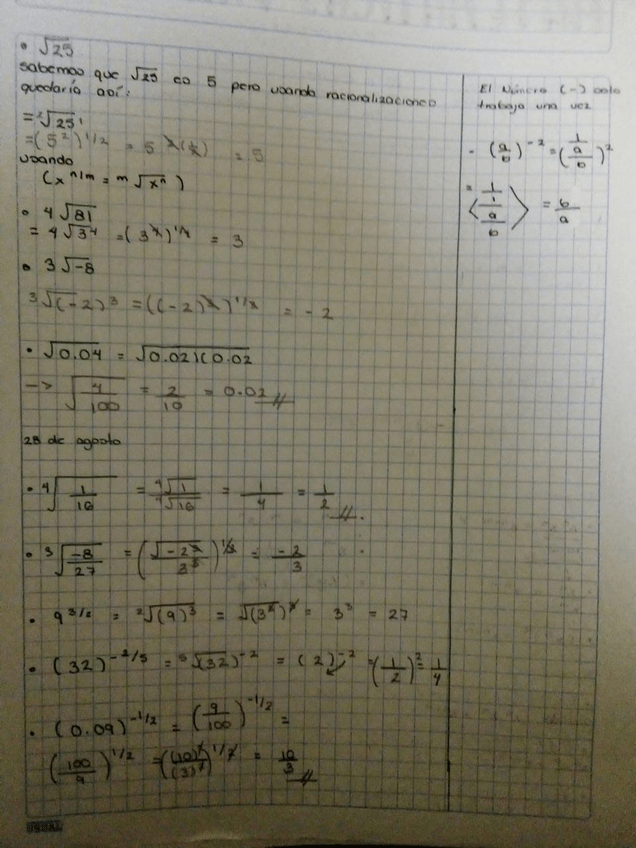 • √25
sabemos que √25 es 5 pero usando racionalizaciones
quedaría así:
= ²√25'
= (5²)^1/2 = 5^2(1/2) = 5
usando
(x^n/m = ^m√x^n)
• 4√81
= 4√3⁴ = (3⁴)^1/4 = 3
• 3√-8
³√(-2)³ = ((-2)³)^1/3 = -2
• √0.04 = √0.02)(0.02
-> √4/100 = 2/10 = 0.02 //
28 de agosto
• ⁴√1/16 = ⁴√1/⁴√16 = 1/4 = 1/2 //.
• ³√-8/27 = (√-2³/3³)^1/3 = -2/3
• 9^3/2 = ²√(9)³ = √(3²)³ = 3³ = 27
• (32)^-2/5 = ⁵√(32)^-2 = (2)^-2 = (1/2)² = 1/4
• (0.09)^-1/2 = (9/100)^-1/2 =
(100/9)^1/2 = ((10)²/(3)²)^1/2 = 10/3 //
El Número (-) solo
trabaja una vez
- (a/b)^-2 = (1/a/b)²
= (1/1/a/b) = b/a
USUAL